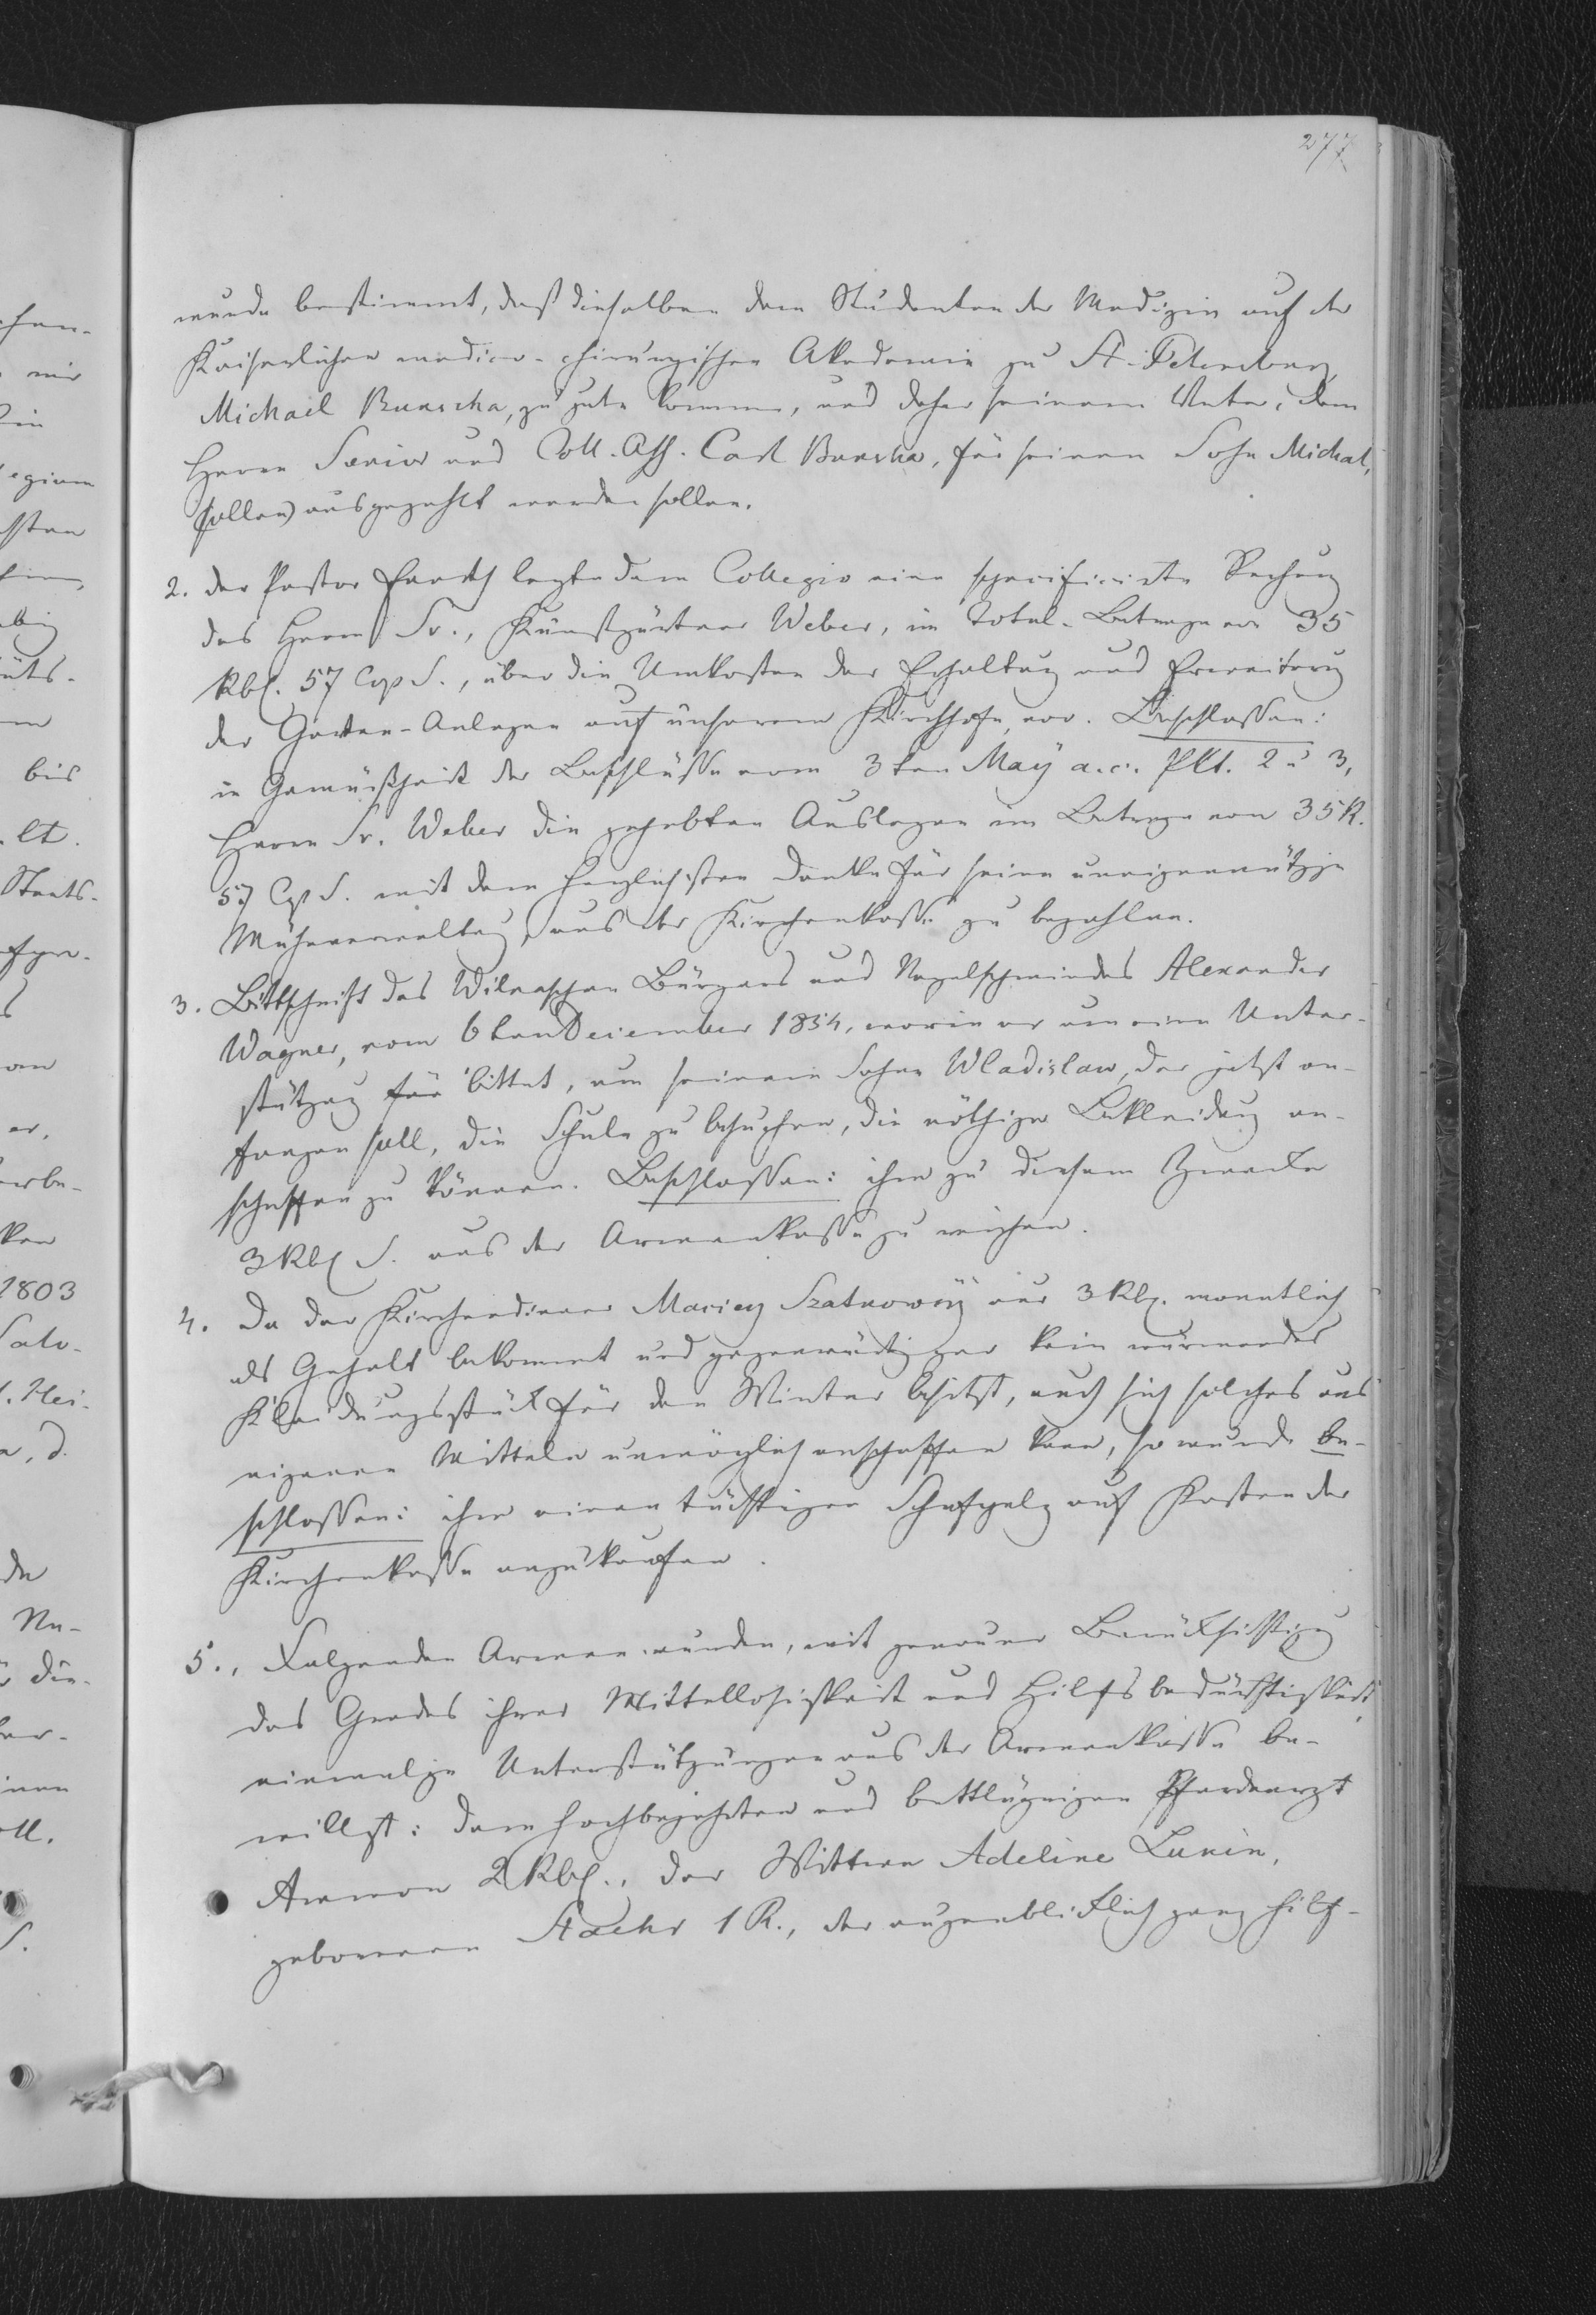 277
wurde bestimmt, daß dieselben dem Studenten der Medizin auf der
Kaiserlichen medico-chirurgischen Akademie zu St. Petersburg,
Michael Bunscha, zu gute kommen, und daher seinem Vater, dem
Herrn Senior und Coll. Ass. Carl Bunscha, für seinen Sohn Michael,
(sollen) ausgezahlt werden sollen.
2. Der Pastor legte dem Collegio eine specificirte Rechnung
des Herrn Sr., Kunstgärtner Weber, im Total-Betrage von 35
Rbl. 57 Cop S., über die Unkosten der Erhaltung und Erweiterung
der Garten-Anlagen auf unserem Kirchhofe, vor. Beschlossen:
in Gemäßheit der Beschlüsse vom 3ten May a. c. Pkt. 2 u 3,
Herrn Sr. Weber die gehabten Auslagen im Betrage von 35 R.
57 Cop S. mit dem herzlichsten Danke für seine uneigennützige
Mühewaltung, aus der Kirchenkasse zu bezahlen.
3. Bittschrift des Wilnaschen Bürgers und Nagelschmiedes Alexander
Wagner, vom 6ten December 1854, worin er um eine Unter-
stützung für bittet, um seinem Sohne Wladislaw, der jetzt an-
fangen soll, die Schule zu besuchen, die nöthige Bekleidung an-
schaffen zu können. Beschlossen: ihm zu diesem Zwecke
3 Rbl S. aus der Armenkasse zu reichen.
4. Da der Kirchendiener Maciey Szatnowÿ nur 3 Rbl. monatlich
als Gehalt bekommt und gegenwärtig gar kein wärmendes
Kleidungsstück für den Winter besitzt, auch sich solches aus
eigenen Mitteln unmöglich anschaffen kann, so wurde be-
schlossen: ihm einen tüchtigen Schafpelz auf Kosten der
Kirchenkasse anzukaufen.
5., Folgenden Armen wurden, mit genauer Berücksichtigung
des Grades ihrer Mittellosigkeit und Hilfsbedürftigkeit,
einmalige Unterstützungen aus der Armenkasse be-
willigt: dem hochbejahrten und bettlägrigen Pferdearzt
Ammon 2 Rbl., der Wittwe Adeline Lunin,
geborenen 1 R., der augenblicklich ganz hilf-